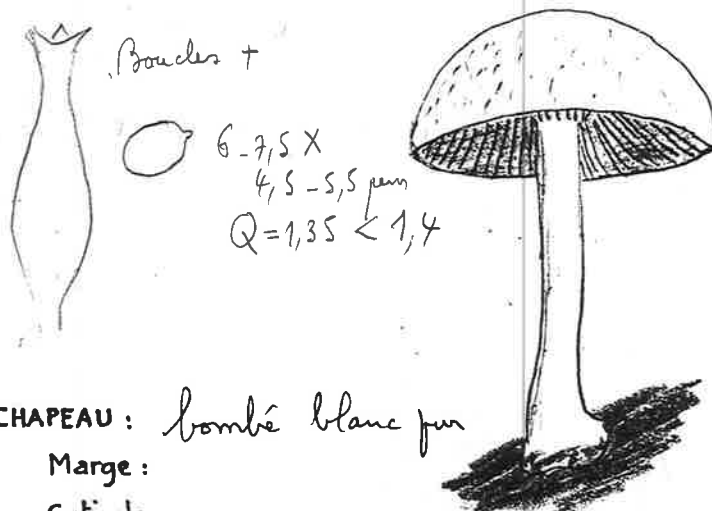 Boucles +
6-7,5 X
4,5-5,5 µm
Q=1,35 < 1,4
CHAPEAU : bombé blanc pur
Marge :